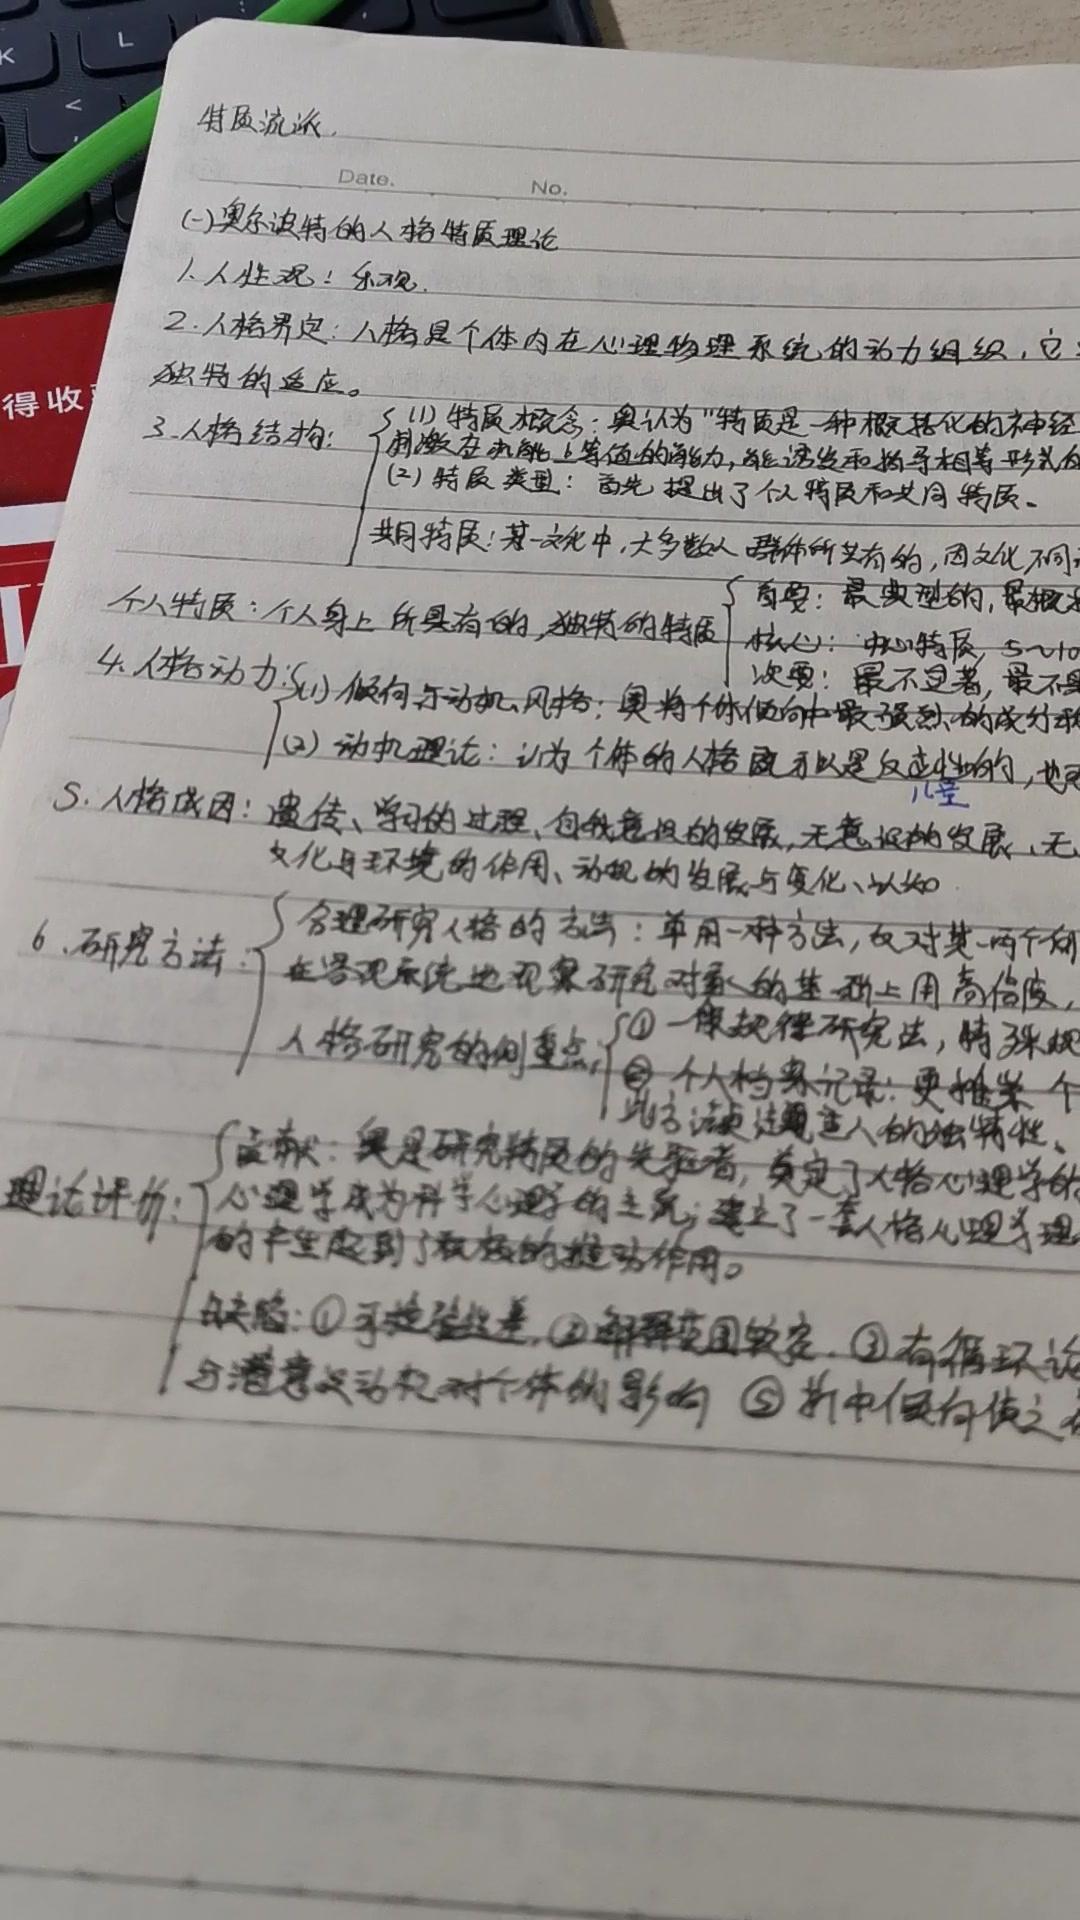 K
L
<
,
得收
特质流派.
Date.
No.
(一)奥尔波特的人格特质理论
1.人性观:乐观.
2.人格界定:人格是个体内在心理物理系统的动力组织,它
独特的适应。
3.人格结构:
(1)特质概念:奥认为"特质是一种概括化的神经
刺激在机能上等值的能力,能诱发和指导相等形式的
(2)特质类型:首先提出了个人特质和共同特质。
共同特质:某一文化中,大多数人群体所共有的,因文化不同
个人特质:个人身上所具有的,独特的特质
首要:最典型的,最概
核心:中心特质,5~10
次要:最不显著,最不
4.人格动力:(1)倾向与动机、风格:奥将个体倾向中最强烈的成分称
(2)动机理论:认为个体的人格既可以是反应性的,也
儿童
5.人格成因:遗传、学习的过程、自我意识的发展,无意识的发展、无
文化与环境的作用、动机的发展与变化、认知
6.研究方法:
合理研究人格的方法:单用一种方法,仅对某一两个
在客观系统地观察研究对象的基础上用高信度,
人格研究的侧重点:
①一般规律研究法,特殊规
②个人档案记录:更推崇个
此方法更注重人的独特性、
理论评价:
贡献:奥是研究特质的先驱者,奠定了人格心理学的
心理学成为科学心理学的主流;建立了一套人格心理学理
的产生起到了积极的推动作用。
缺陷:①可验证性差.②解释范围较窄.③有循环论
与潜意识动机对个体的影响 ⑤折中倾向使之